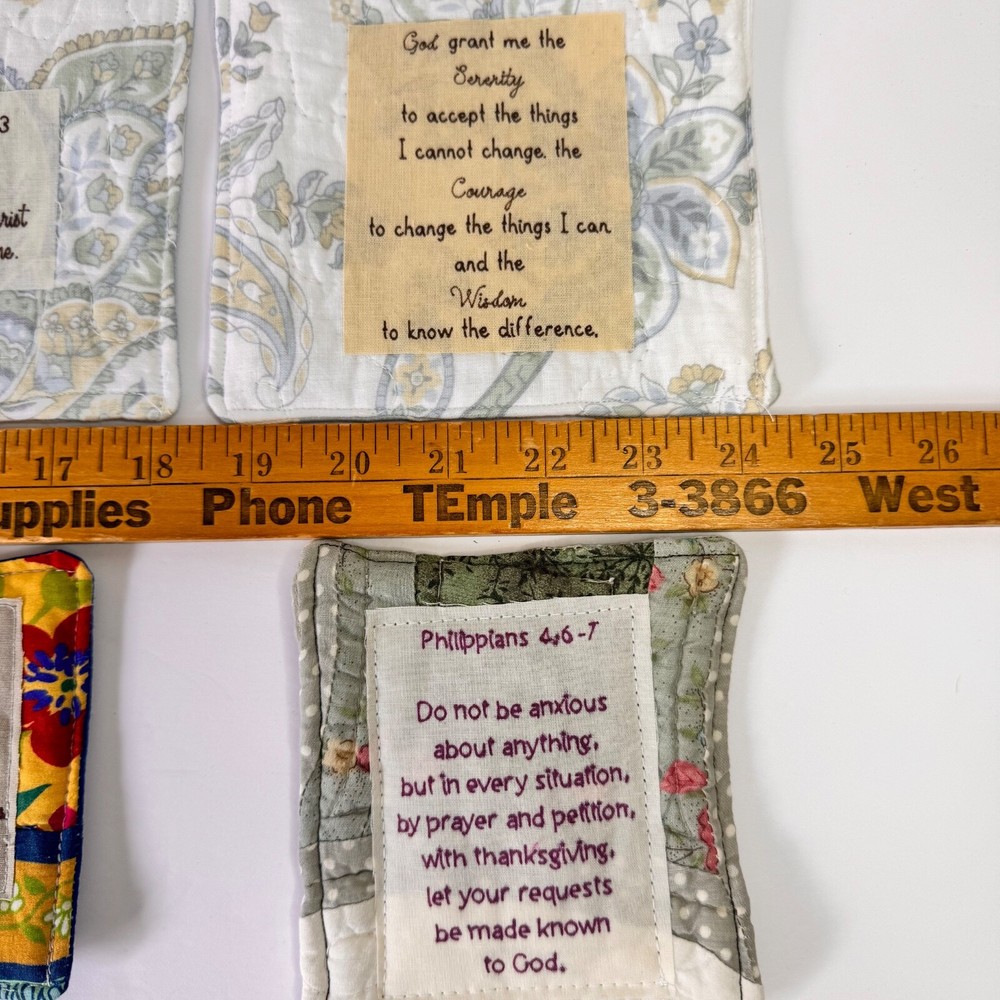 3
God grant me the
Serenity
to accept the things
I cannot change, the
Courage
to change the things I can
and the
Wisdom
to know the difference.
ne.
17 18 19 20 21 22 23 24 25 26
upplies Phone TEmple 3-3866 West
Philippians 4:6-7
Do not be anxious
about anything,
but in every situation,
by prayer and petition,
with thanksgiving,
let your requests
be made known
to God.